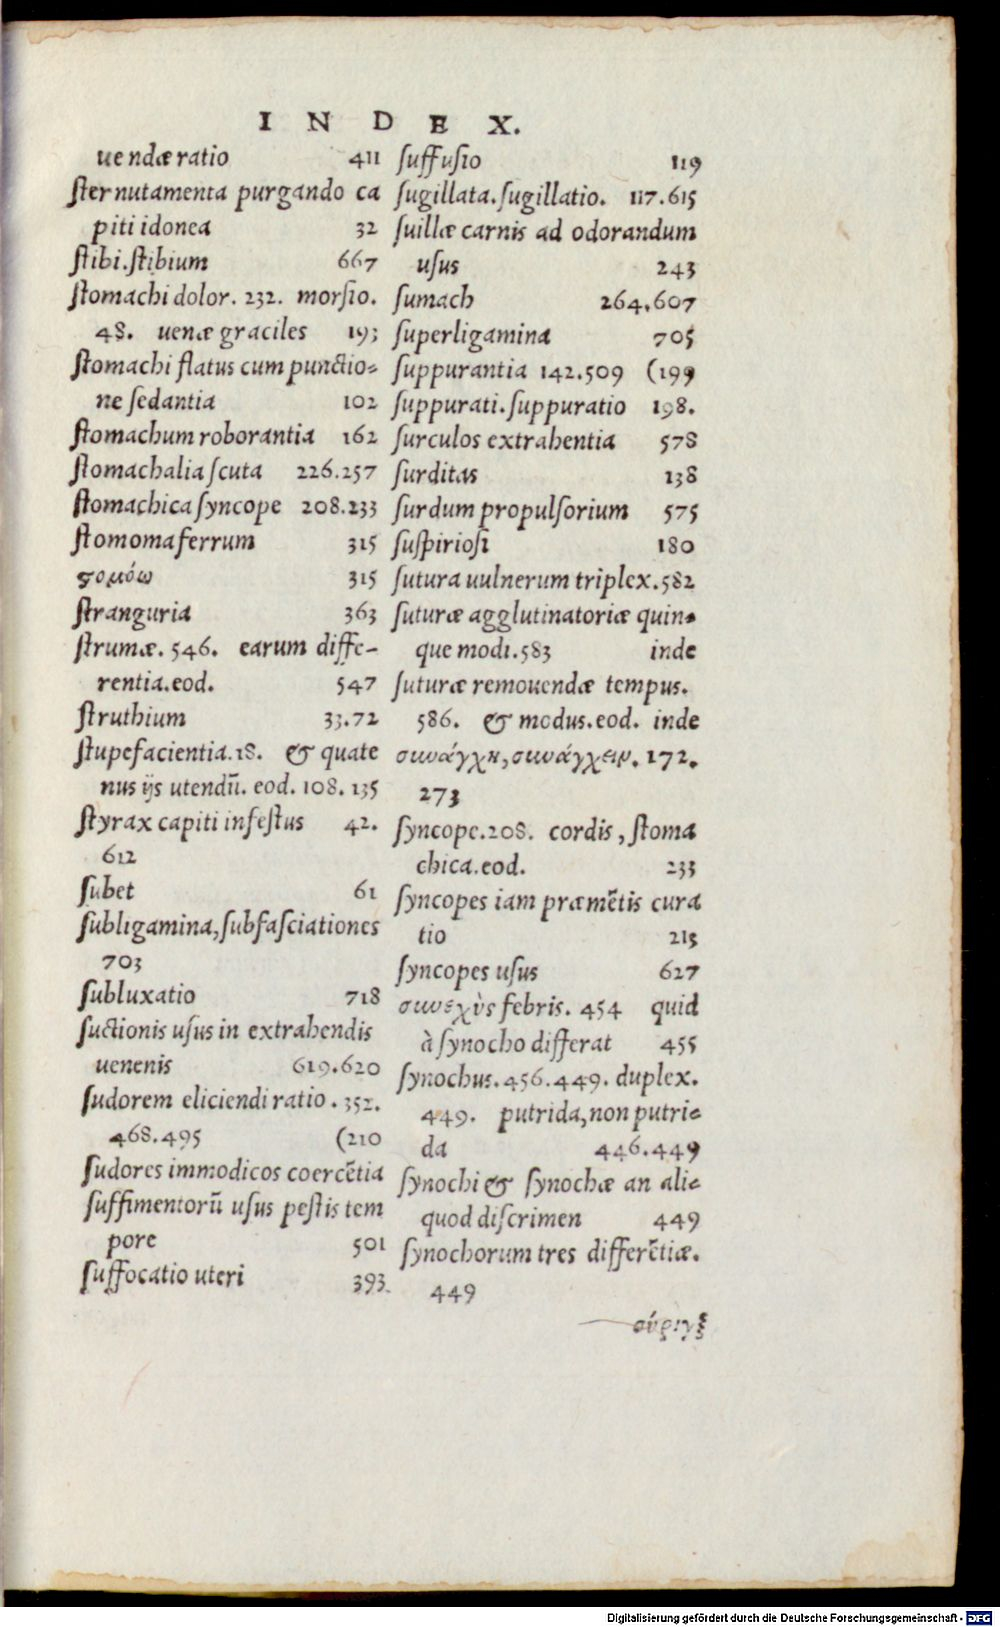 INDEX.
uendæ ratio 411
sternutamenta purgando ca
piti idonea 32
stibi. stibium 667
stomachi dolor. 232. morsio.
48. uenæ graciles 193
stomachi flatus cum punctio-
ne sedantia 102
stomachum roborantia 162
stomachalia scuta 226.257
stomachica syncope 208.233
stomoma ferrum 315
ϛομόω 315
stranguria 363
strumæ. 546. earum diffe-
rentia. eod. 547
struthium 33.72
stupefacientia. 18. & quate
nus ijs utendū. eod. 108. 135
styrax capiti infestus 42.
612
subet 61
subligamina, subfasciationes
703
subluxatio 718
suctionis usus in extrahendis
uenenis 619.620
sudorem eliciendi ratio. 352.
468.495 (210
sudores immodicos coercētia
suffimentorū usus pestis tem
pore 501
suffocatio uteri 393
suffusio 119
sugillata. sugillatio. 117.615
suillæ carnis ad odorandum
usus 243
sumach 264.607
superligamina 705
suppurantia 142.509 (199
suppurati. suppuratio 198.
surculos extrahentia 578
surditas 138
surdum propulsorium 575
suspiriosi 180
sutura uulnerum triplex. 582
suturæ agglutinatoriæ quin-
que modi. 583 inde
suturæ remouendæ tempus.
586. & modus. eod. inde
συνάγχη, συνάγχειν. 172.
273
syncope. 208. cordis, stoma
chica. eod. 233
syncopes iam præmētis cura
tio 213
syncopes usus 627
συνεχὺς febris. 454 quid
à synocho differat 455
synochus. 456. 449. duplex.
449. putrida, non putri-
da 446.449
synochi & synochæ an ali-
quod discrimen 449
synochorum tres differētiæ.
449
σύριγξ
Digitalisierung gefördert durch die Deutsche Forschungsgemeinschaft - DFG